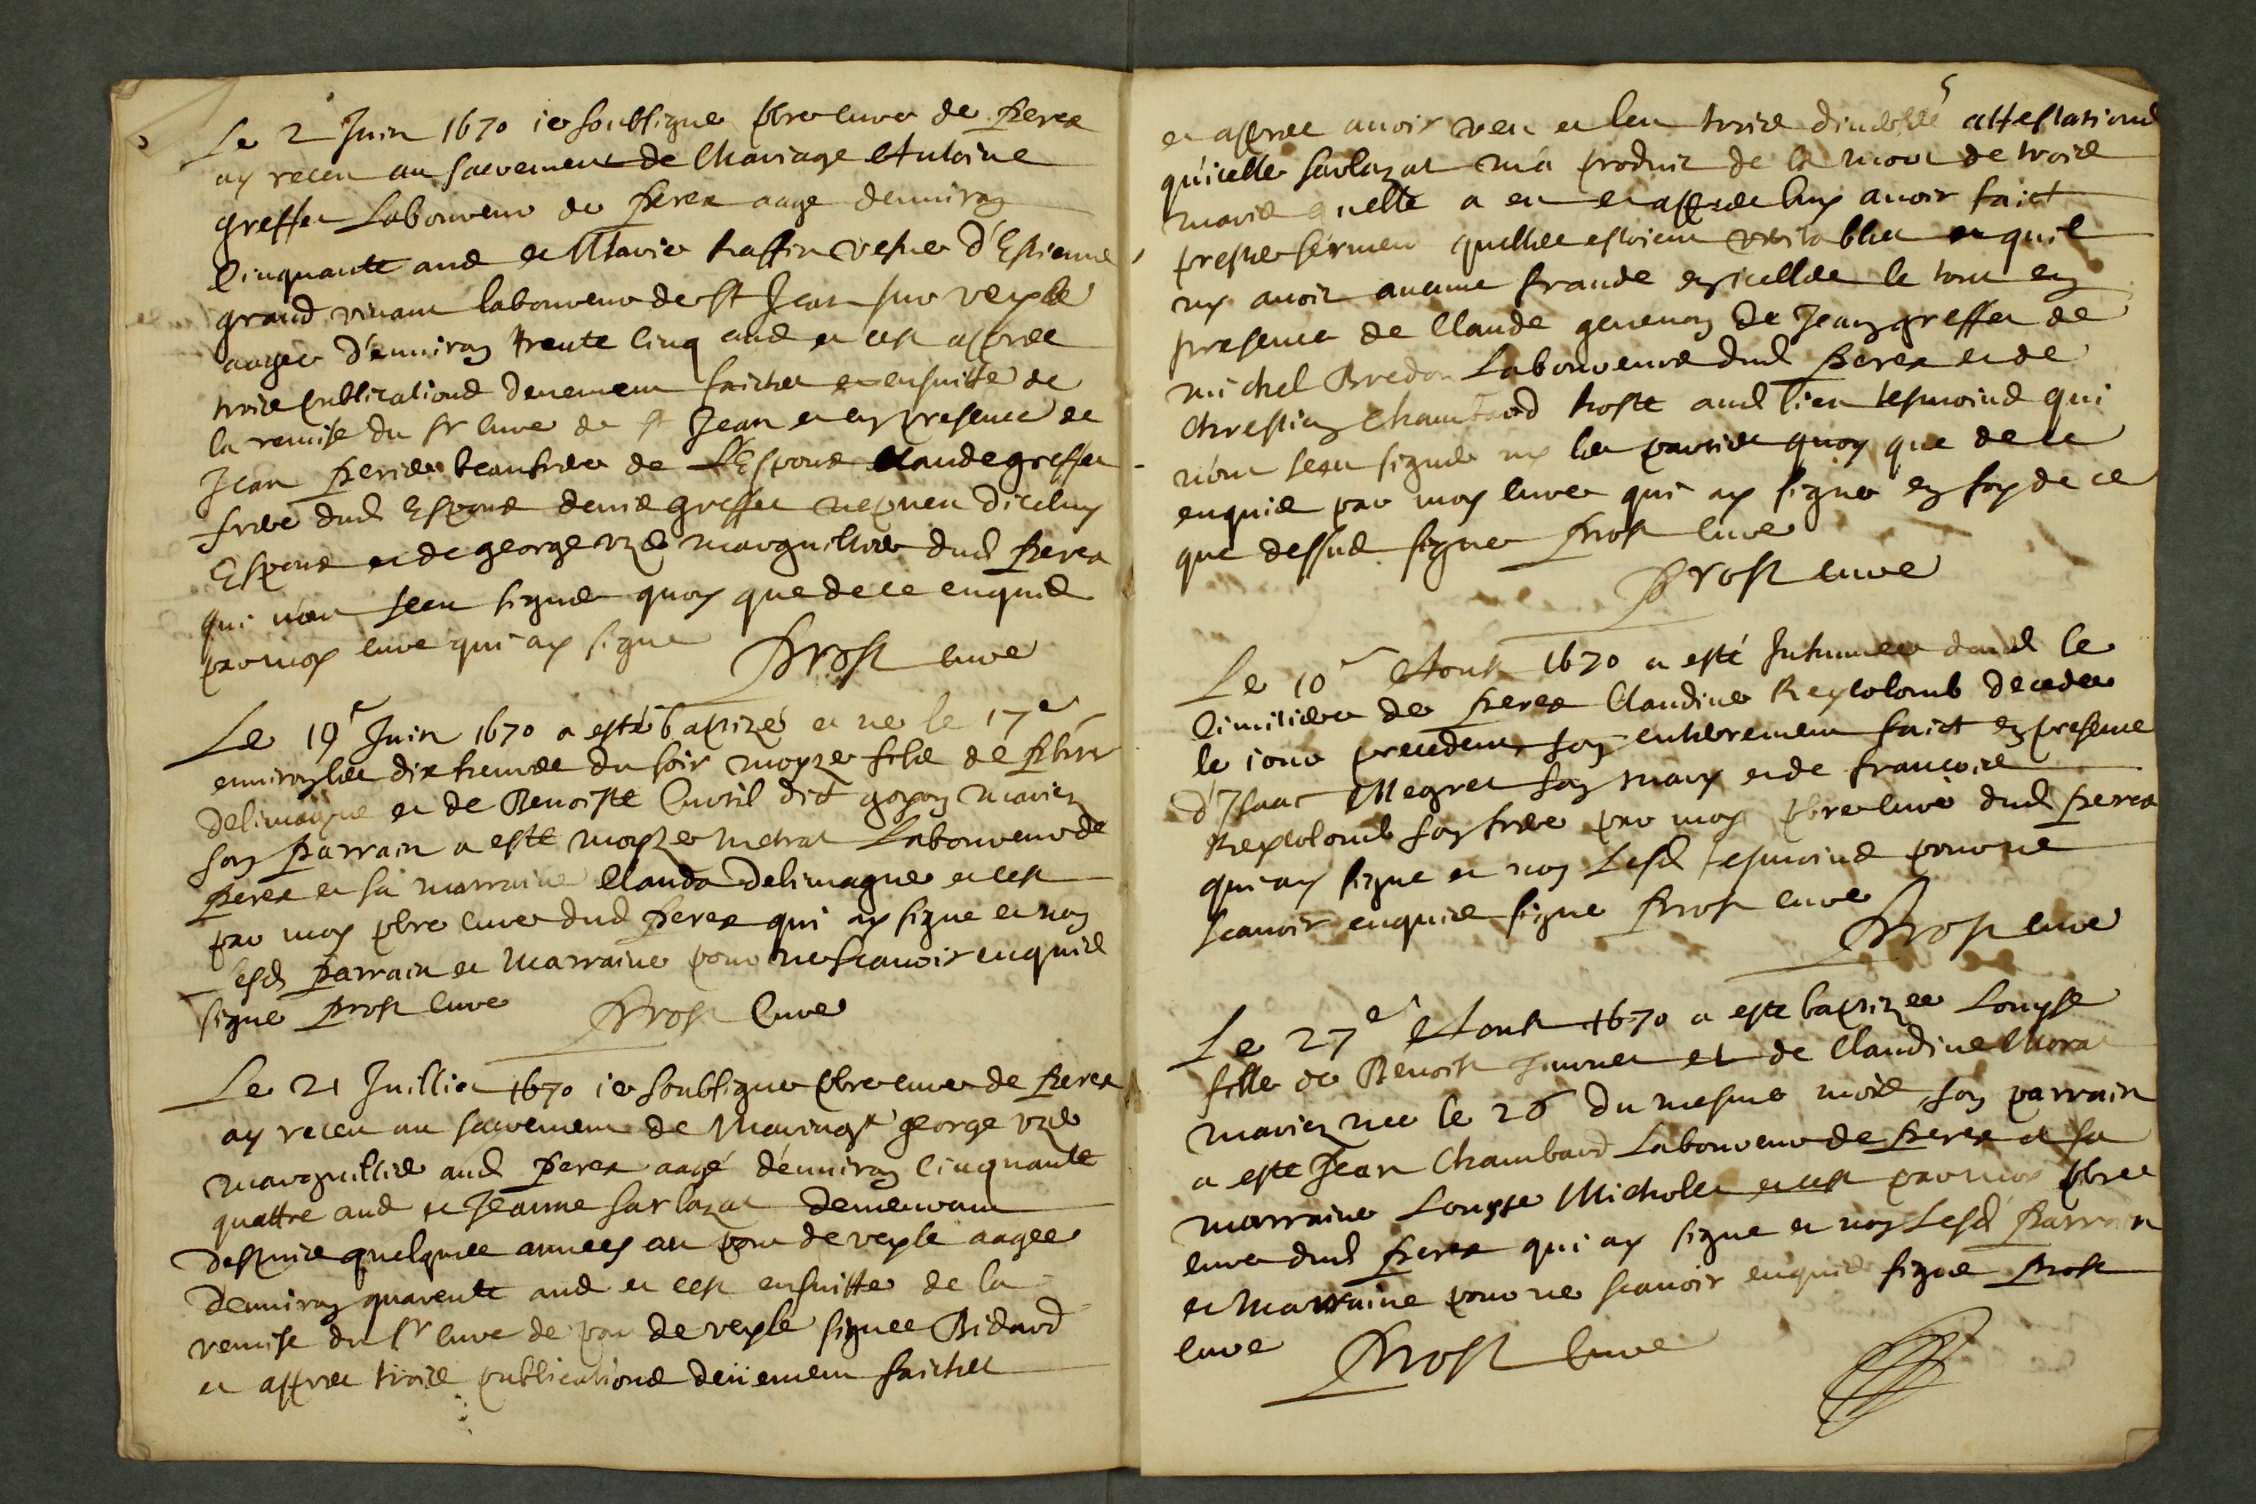 Le 2 Juin 1670 ie soubsigne pbre cure de perex
ay receu au sacrement de Mariage Antoine
greffet Laboureur de perex aage denuiron
Cinquante ans et Marie traffin vesue d'Estienne
grand viuant laboureur de St Jean sur veyle
aagee d'enuiron trente cinq ans et ces apres
trois publications deuement faictes et ensuitte de
la remise du sr cure de st Jean et en presence de
Jean perier beaufrere de L'Espous Claude greffet
frere dud Espous denis greffet nepueu diceluy
Espous et de george vzé marguillier dud perex
qui n'ont sceu signer quoy que de ce enquis
par moy cure qui ay signe Prost cure
Le 19e Juin 1670 a esté baptizé et ne le 17e
enuiron les dix heures du soir moyze fils de
delimagne et de Benoiste Curtil dit goyon mariez
son parrain a este moyze metrat Laboureur de
perex et sa marraine Clauda Delimagne et ces
par moy pbre cure dud perex qui ay signe et non
lesd parrain et marraine pour ne scauoir enquis
signe prost cure Prost Cure
Le 21 Juillet 1670 ie soubsigne pbre cure de perex
ay receu au sacrement de Mariage george vzé
marguillier aud perex aagé d'enuiron cinquante
quattre ans et Jeanne sarlazat demeurant
despuis quelques annees au pont de veyle aagee
denuiron quarente ans et ces ensuitte de la
remise du sr cure de pont de veyle signee Bidard
et apres trois publications deüement faictes
et apres auoir veu et leu trois diuerses attestations
qu'icelle sarlazat m'a produit de la mort de trois
maris quelle a eu et apres luy auoir faict
prester serment quelles estoient veritables et quil
ny auoit aucune fraude en icelles le tout en
presence de Claude geneuoy de Jean greffet de
michel Bredon Laboureurs dud perex et de
chrestien Chambard hoste aud lieu tesmoins qui
n'ont sceu signer ny les parties quoy que de ce
enquis par moy cure qui ay signe en foy de ce
que dessus signe prost cure
Prost cure
Le 10e Aoust 1670 a esté Inhumee dans le
Cimitiere de perex Claudine Reycolomb decedee
le iour precedent son enterrement faict en presence
d'Isaac Megret son mary et de francois
Reycolomb son frere par moy pbre cure dud perex
qui ay signe et non Lesd tesmoins pour ne
scauoir enquis signe prost cure
Prost cure
Le 27e Aoust 1670 a este baptizee Louyse
fille de Benoist et de Claudine Morat
mariez nee le 26 du mesme mois, son parrain
a este Jean Chambard Laboureur de perex et sa
marraine Louyse Micholet et ces par moy pbre
cure dud perex qui ay signe et non Lesd parrain
et Marraine pour ne scauoir enquis signe prost
cure Prost Cure